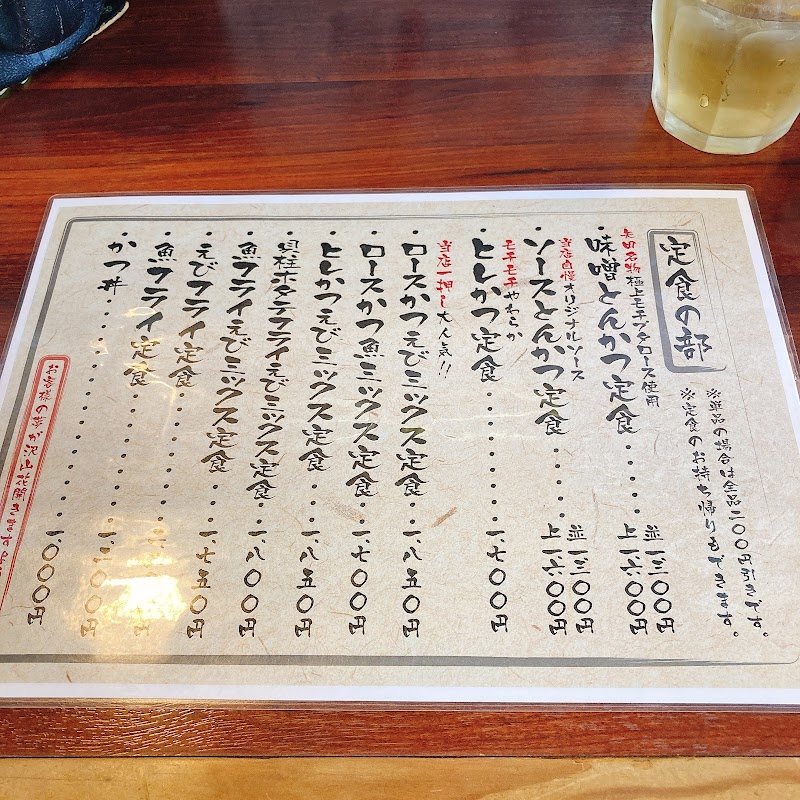 定食の部
※単品の場合は全品二〇〇円引きです。
※定食のお持ち帰りもできます。
矢田名物極上モチブタロース使用
・味噌とんかつ定食・・・・並一、三〇〇円
上一、六〇〇円
当店自慢オリジナルソース
・ソースとんかつ定食・・・・並一、三〇〇円
上一、六〇〇円
モチモチやわらか
・ヒレかつ定食・・・・・・・・一、七〇〇円
当店一押し大人気!!
・ロースかつえびミックス定食・・一、八五〇円
・ロースかつ魚ミックス定食・・一、七〇〇円
・ヒレかつえびミックス定食・・・一、八五〇円
・貝柱ホタテフライえびミックス定食・・一、八〇〇円
・魚フライえびミックス定食・・・一、七五〇円
・えびフライ定食・・・・・・・・円
・魚フライ定食・・・・・・・・一、三〇〇円
・かつ丼・・・・・・・・・・・・一、〇〇〇円
お客様の夢が沢山花開きます